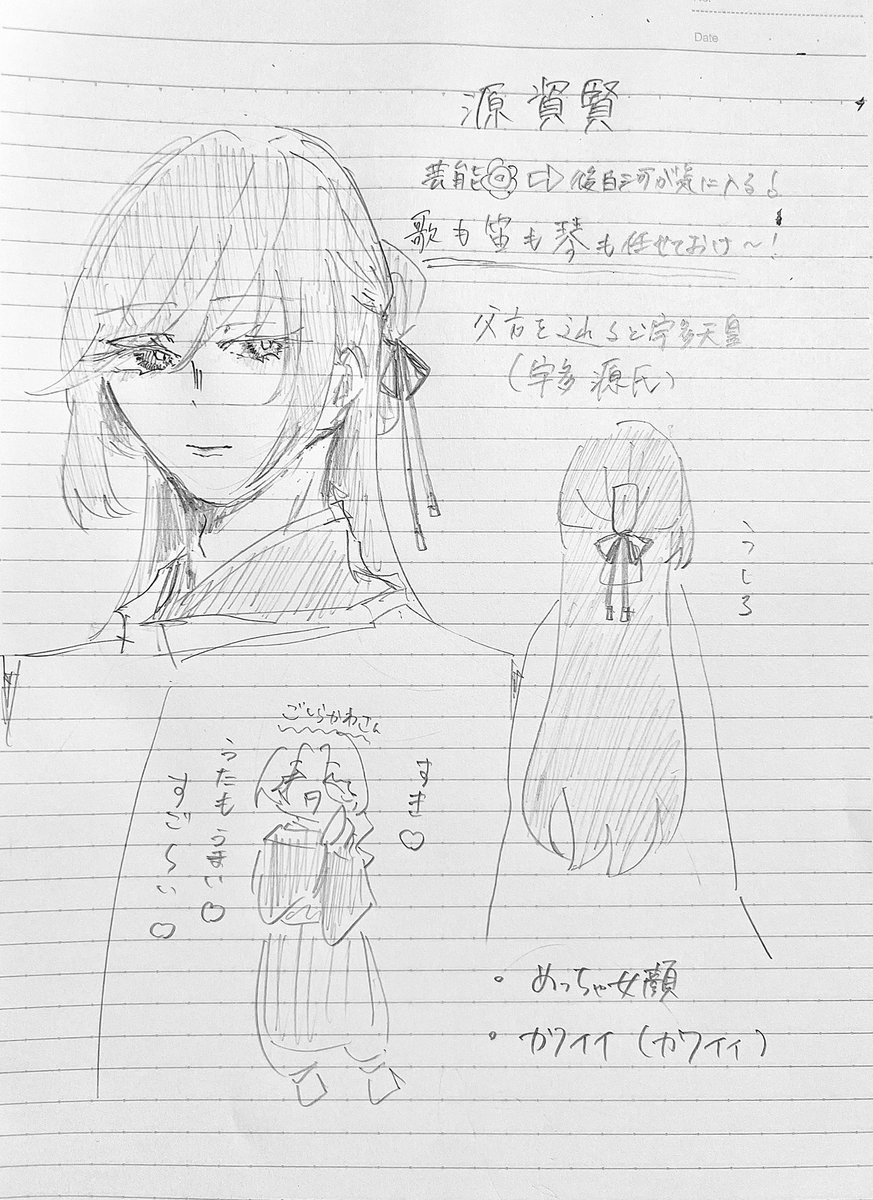 No.
Date
源 資賢
芸能◎ ⇨ 後白河が気に入る!
歌も笛も琴も任せておけ〜!
父方を辿ると宇多天皇
(宇多源氏)
うしろ
ごしらかわさん
すき♡
うたもうまい♡
すごーい♡
・めっちゃ女顔
・カワイイ(カワイイ)